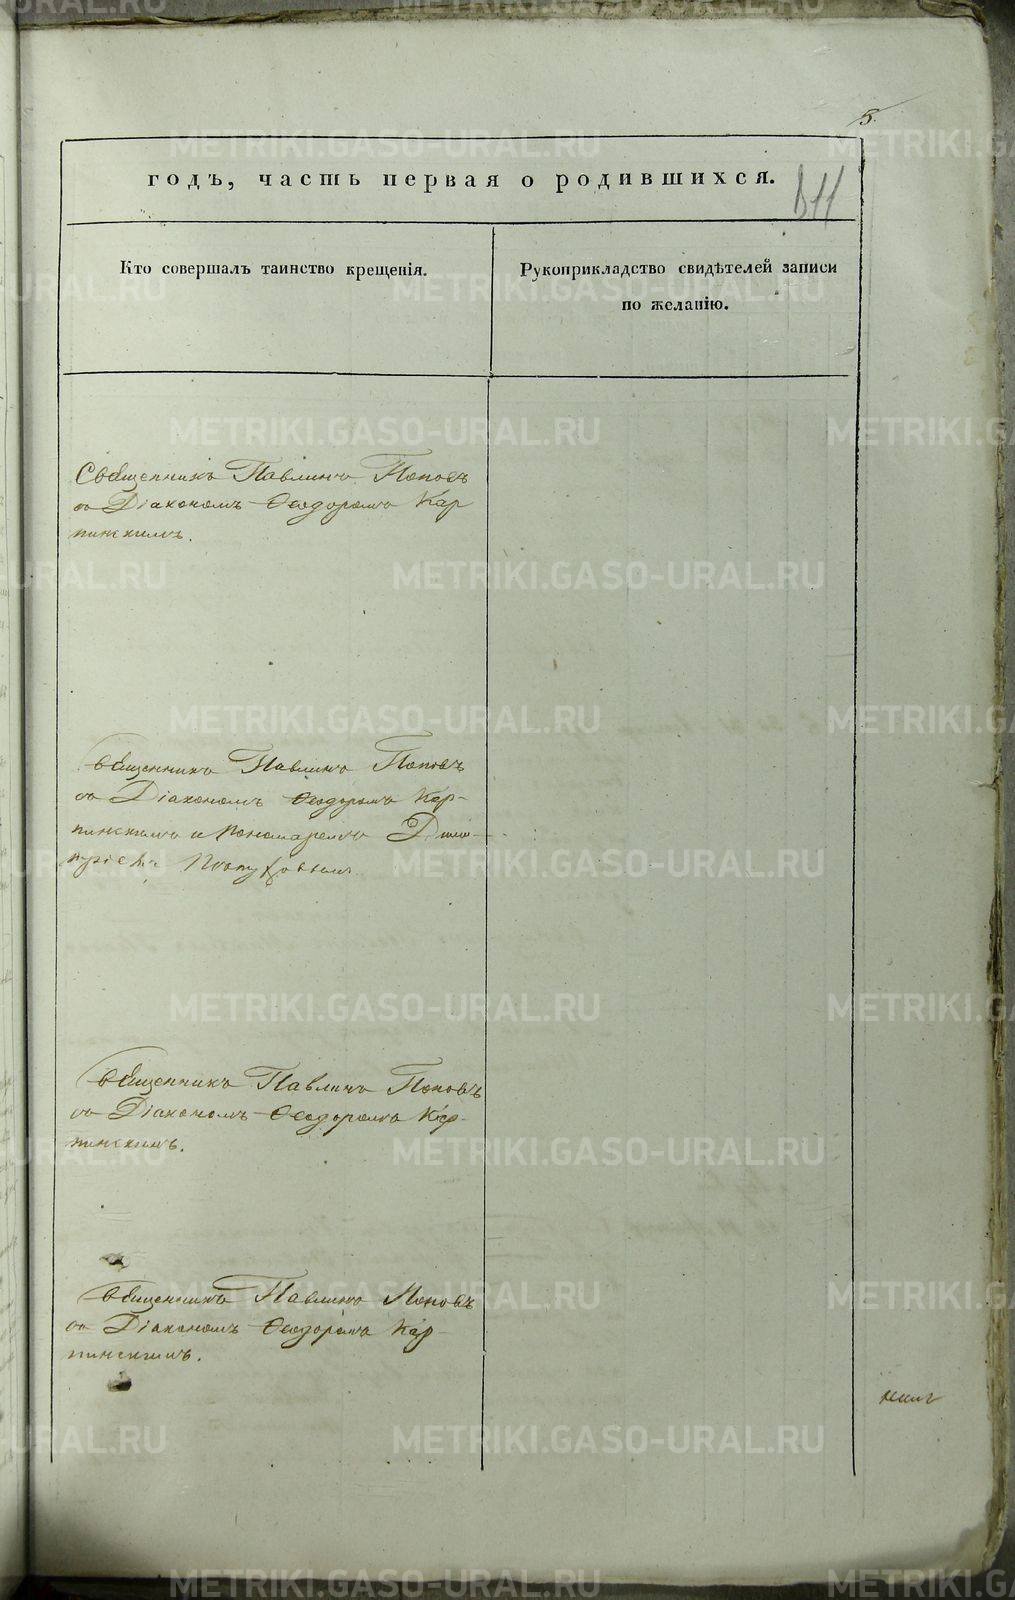 5.
годъ, часть первая о родившихся.
Кто совершалъ таинство крещенія.
Рукоприкладство свидѣтелей записи
по желанію.
Священникъ Павлинъ Поповъ
съ Діакономъ Ѳеодоромъ Кар
пинскимъ.
Священникъ Павлинъ Поповъ
съ Діакономъ Ѳеодоромъ Кар-
пинскимъ и пономаремъ Дими-
тріемъ
Священникъ Павлинъ Поповъ
съ Діакономъ Ѳеодоромъ Кар-
пинскимъ.
Священникъ Павлинъ Поповъ
съ Діакономъ Ѳеодоромъ Кар-
пинскимъ.
METRIKI.GASO-URAL.RU